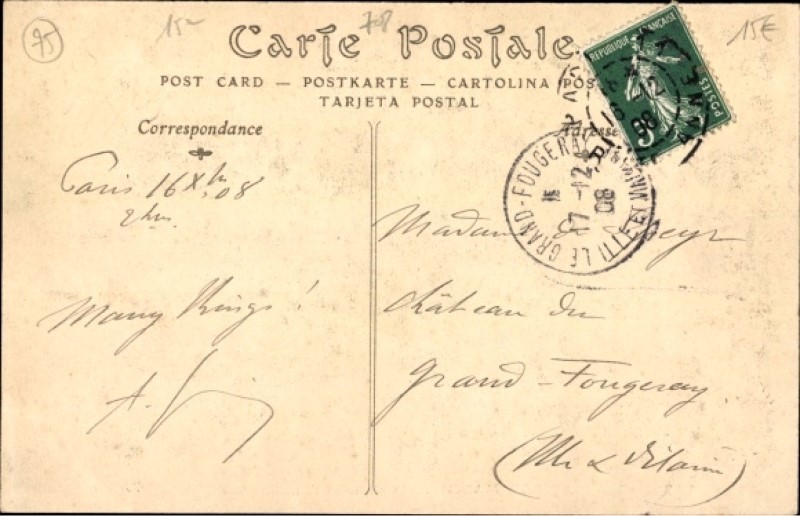 75
15
708
15€
Carte Postale
POST CARD — POSTKARTE — CARTOLINA POS
TARJETA POSTAL
RÉPUBLIQUE FRANÇAISE
POSTES
5
16 - 12
08
LE GRAND-FOUGERAY ILLE ET VILAINE
17 - 12
08
Correspondance
Adresse
Paris 16 Xbre 08
Many Things !
A.
Madame de
Château du
Grand-Fougeray
(Ille & Vilaine)